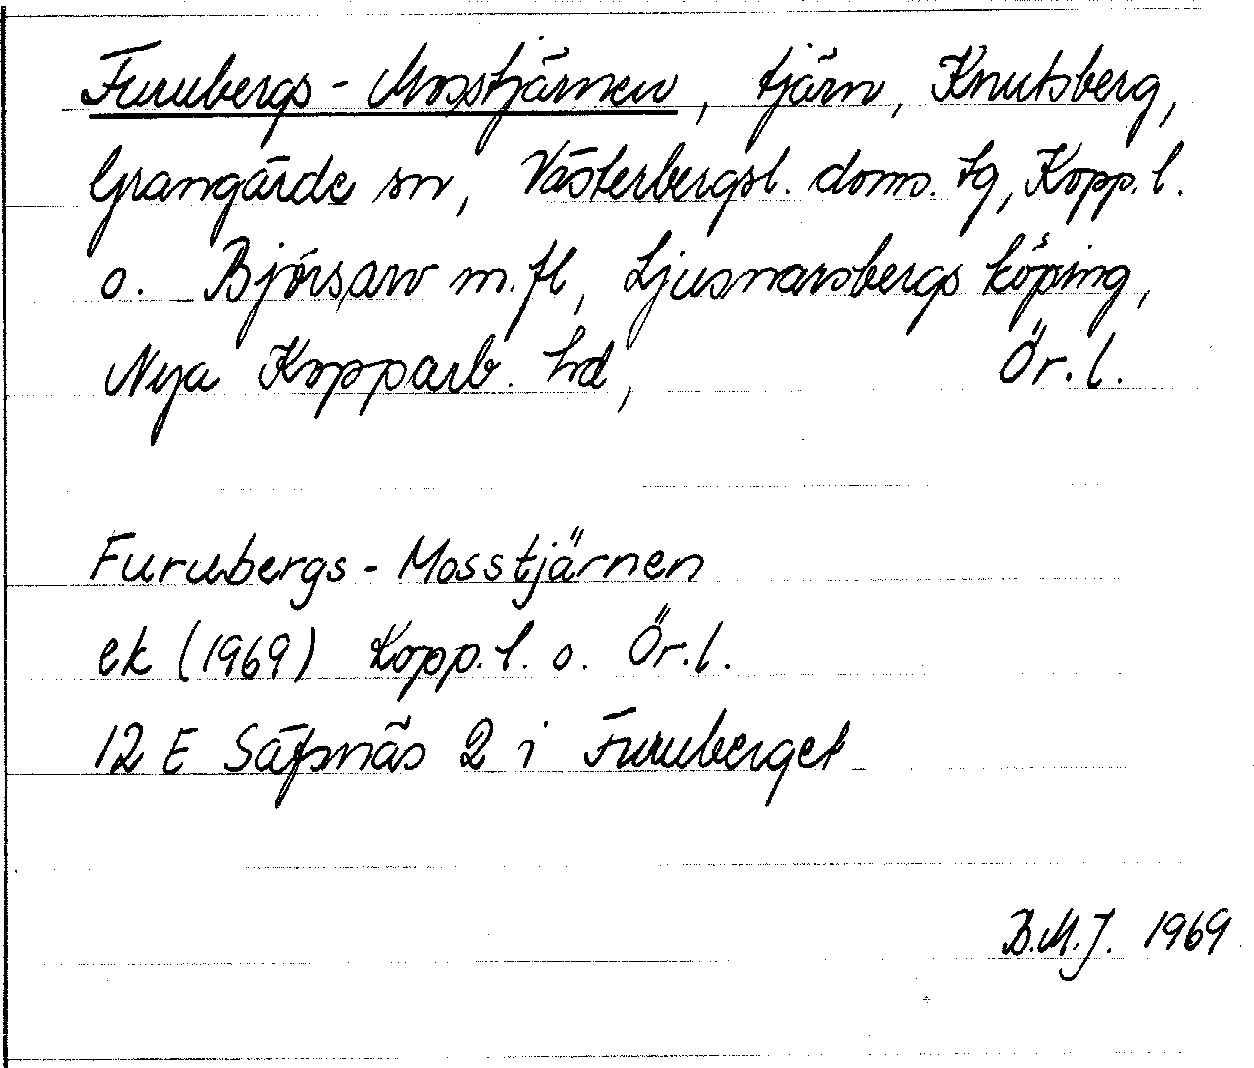 Furubergs - Mosstjärnen, tjärn, Knutsberg,
Grangärde sn, Västerbergsl. doms. tg, Kopp. l.
o. Björsarv m.fl, Ljusnarsbergs köping,
Nya Kopparb. hd, Ör. l.
Furubergs - Mosstjärnen
ek (1969) Kopp. l. o. Ör. l.
12 E Säfsnäs 2 i Furuberget
B.M.J. 1969